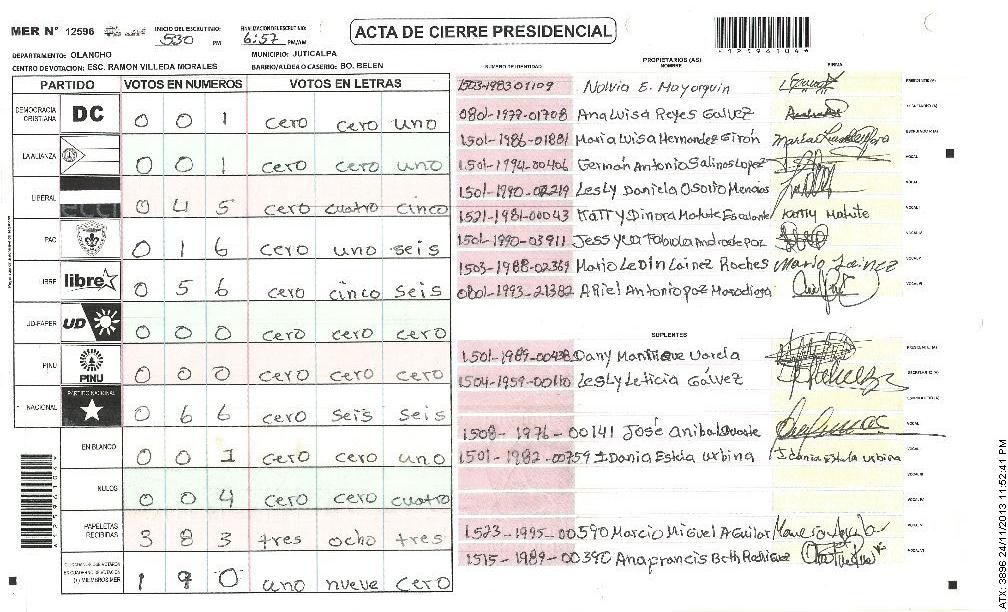 MER N° 12596 INICIO DEL ESCRUTINIO: 530 PM FINALIZACION DEL ESCRUTINIO: 6:57 PM/AM
ACTA DE CIERRE PRESIDENCIAL
DEPARTAMENTO: OLANCHO MUNICIPIO: JUTICALPA
CENTRO DE VOTACION: ESC. RAMON VILLEDA MORALES BARRIO/ALDEA O CASERIO: BO. BELEN
PARTIDO VOTOS EN NUMEROS VOTOS EN LETRAS
DEMOCRACIA CRISTIANA DC 0 0 1 cero cero uno
LA ALIANZA 0 0 1 cero cero uno
LIBERAL 0 4 5 cero cuatro cinco
PAC 0 1 6 cero uno seis
LIBRE libre 0 5 6 cero cinco seis
UD-FAPER UD 0 0 0 cero cero cero
PINU PINU 0 0 0 cero cero cero
NACIONAL PARTIDO NACIONAL 0 6 6 cero seis seis
EN BLANCO 0 0 1 cero cero uno
NULOS 0 0 4 cero cero cuatro
PAPELETAS RECIBIDAS 3 8 3 tres ocho tres
1 9 0 uno nueve cero
NUMERO DE IDENTIDAD PROPIETARIOS (AS) NOMBRE FIRMA
1503-1983 01109 Nolvia E. Mayorquin
0801-1977-01708 Ana Luisa Reyes Galvez
1501-1986-01881 Maria Luisa Hernandez Girón
1501-1994-00406 Germán Antonio Salinas Lopez VOCAL
1501-1990-02219 Lesly Daniela Osorto
1521-1981-00043 Katty Dinora Matute Escalante Katty Matute
1501-1990-03911 Jessyca Fabiola Andrade paz
1503-1988-02369 Mario Ledin Lainez Roches Mario Lainez
0801-1993-21382 Ariel Antonio paz
SUPLENTES
1501-1989-00438 Dany Manrique Varela
1504-1959-00110 Lesly Leticia Gálvez
1508-1976-00141 José Anibal
1501-1982-00759 Idania Estela Urbina Idania Estela Urbina
1523-1995-00590 Marcio Miguel Aguilar
1515-1989-00390 Anafrancis Beth Rodriguez
ATX: 3896 24/11/2013 11:52:41 PM